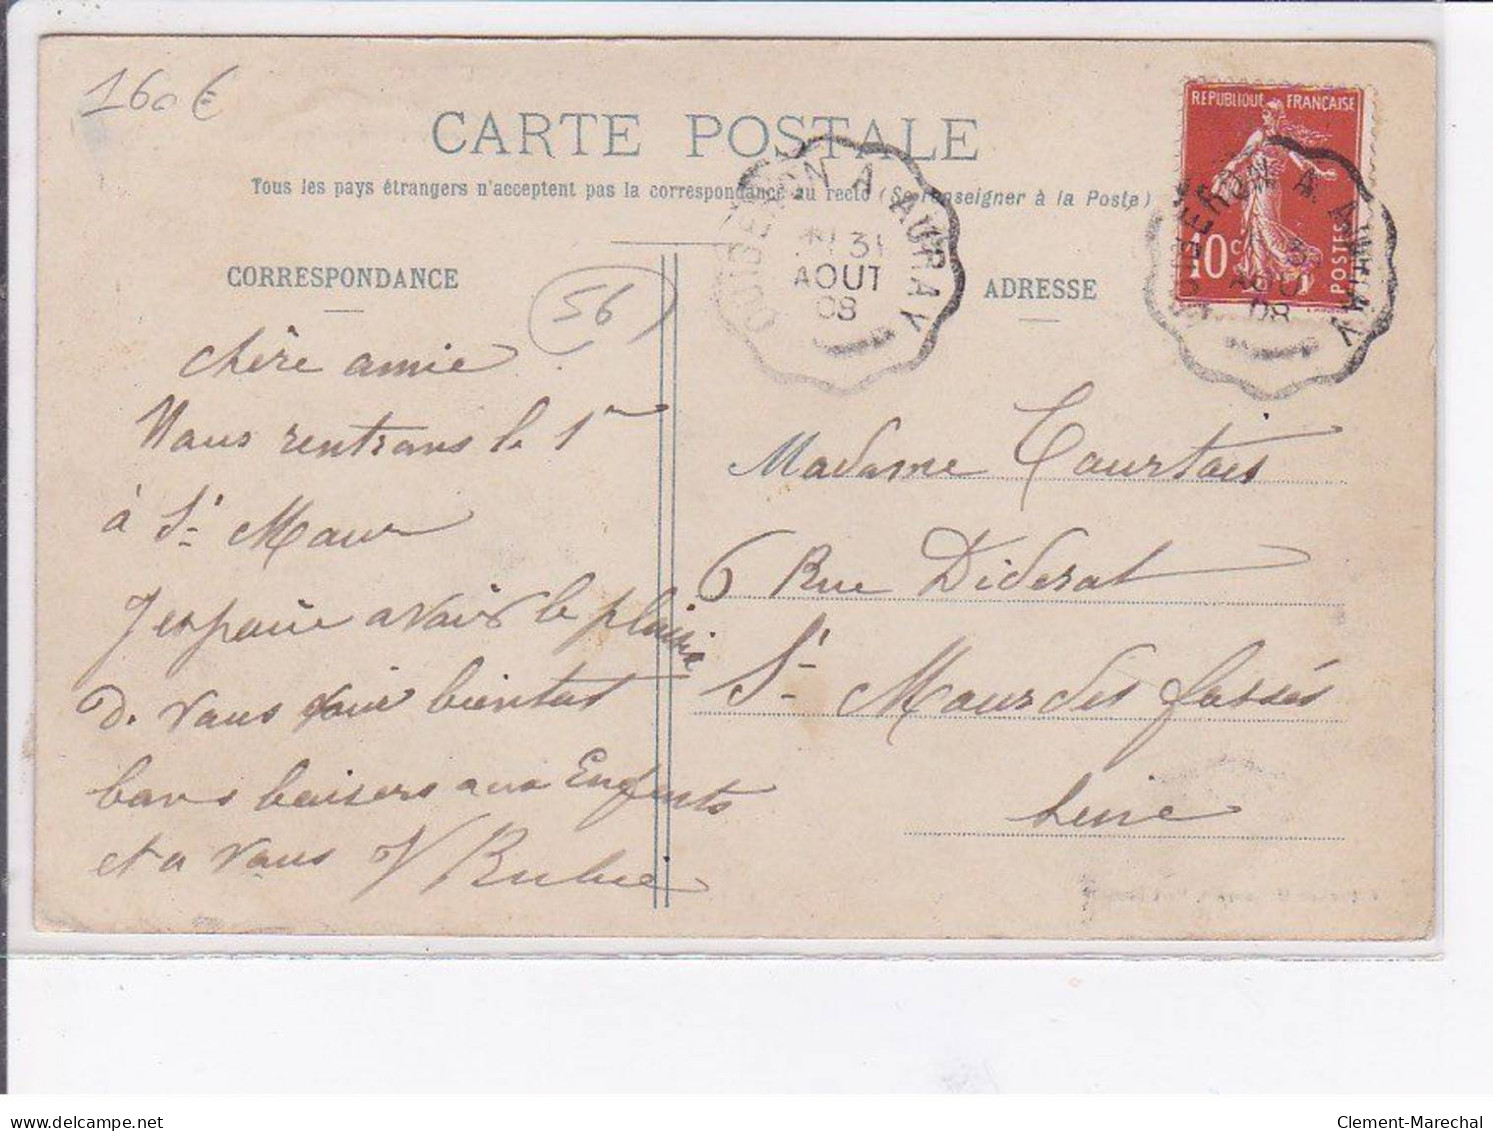 160€
CARTE POSTALE
Tous les pays étrangers n'acceptent pas la correspondance au recto (Se renseigner à la Poste)
REPUBLIQUE FRANÇAISE
10c
POSTES
QUIBERON A AURAY
31
AOUT
08
QUIBERON A AURAY
AOUT
08
CORRESPONDANCE
56
ADRESSE
chère amie
Nous rentrons le 1er
à St Maur
J'espaire avoir le plaisir
de vous voir bientot
bons baisers aux Enfants
et a vous
Madame Courtois
6 Rue Diderot
St Maur des fossés
Seine
delcampe.net
Clement-Marechal